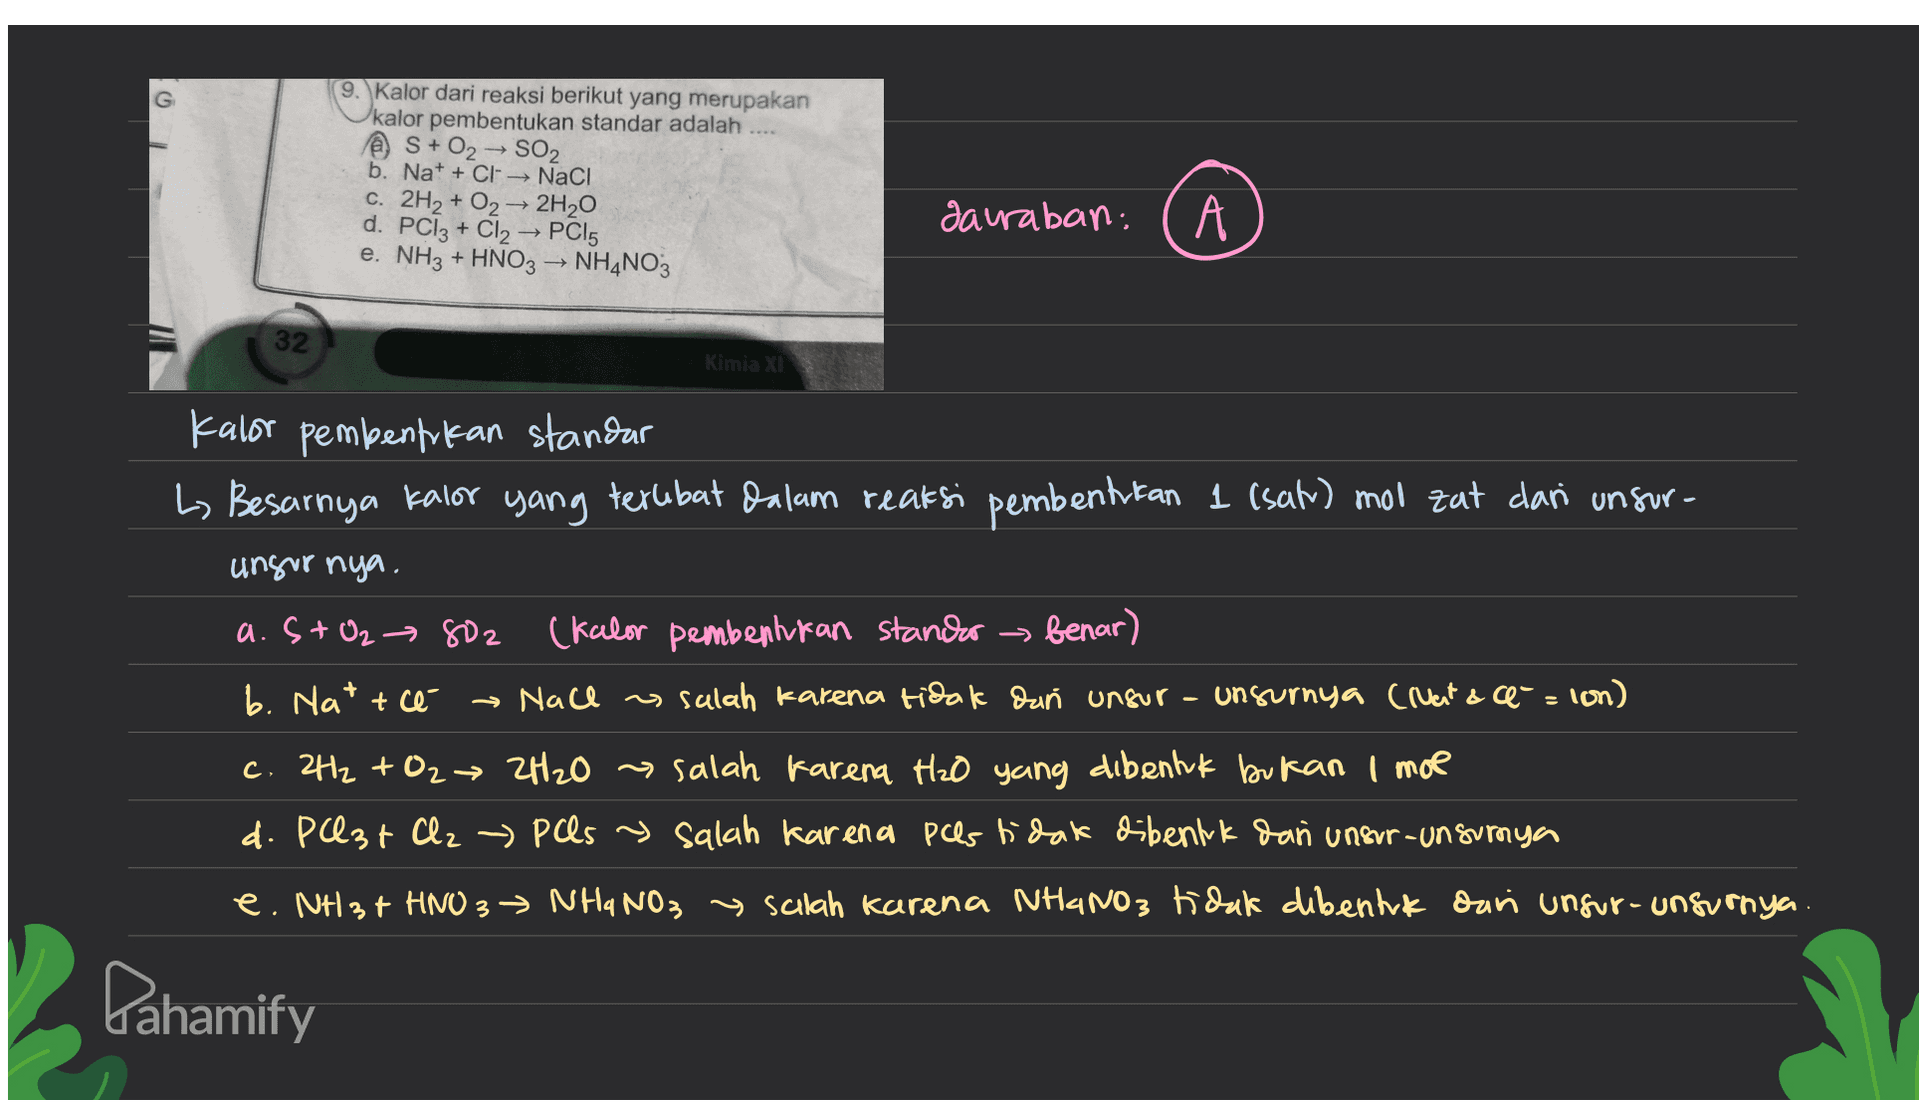 G
9. Kalor dari reaksi berikut yang merupakan
kalor pembentukan standar adalah ....
a. S + O₂ → SO₂
b. Na⁺ + Cl⁻ → NaCl
c. 2H₂ + O₂ → 2H₂O
d. PCl₃ + Cl₂ → PCl₅
e. NH₃ + HNO₃ → NH₄NO₃
32
Kimia XI
Jawaban: A
Kalor pembentukan standar
↳ Besarnya kalor yang terlibat dalam reaksi pembentukan 1 (satu) mol zat dari unsur-
unsurnya.
a. S + O₂ → SO₂ (kalor pembentukan standar → Benar)
b. Na⁺ + Cl⁻ → NaCl ~> salah karena tidak dari unsur - unsurnya (Na⁺ & Cl⁻ = ion)
c. 2H₂ + O₂ → 2H₂O ~> salah karena H₂O yang dibentuk bukan 1 mol
d. PCl₃ + Cl₂ → PCl₅ ~> salah karena PCl₅ tidak dibentuk dari unsur-unsurnya
e. NH₃ + HNO₃ → NH₄NO₃ ~> salah karena NH₄NO₃ tidak dibentuk dari unsur-unsurnya.
Pahamify